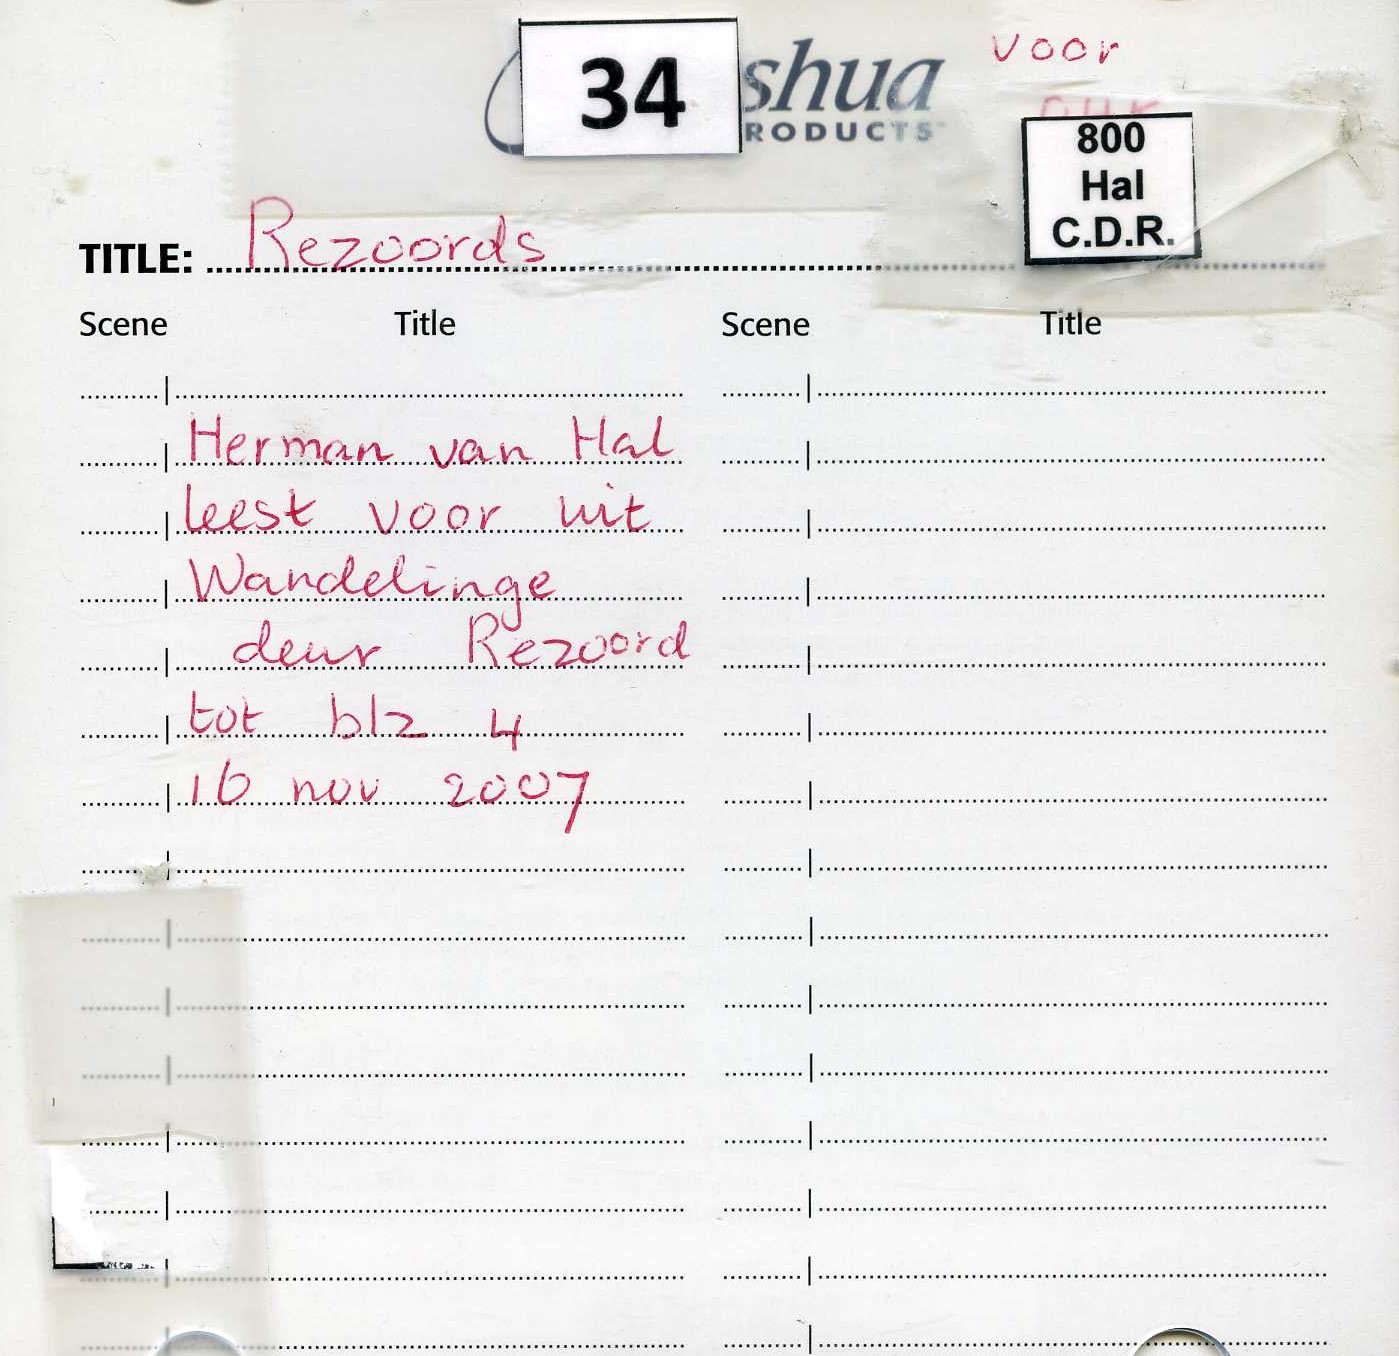 34
shua
RODUCTS
voor
800
Hal
C.D.R.
TITLE: Rezoords
Scene Title Scene Title
Herman van Hal
leest voor uit
Wandelinge
deur Rezoord
tot blz 4
16 nov 2007